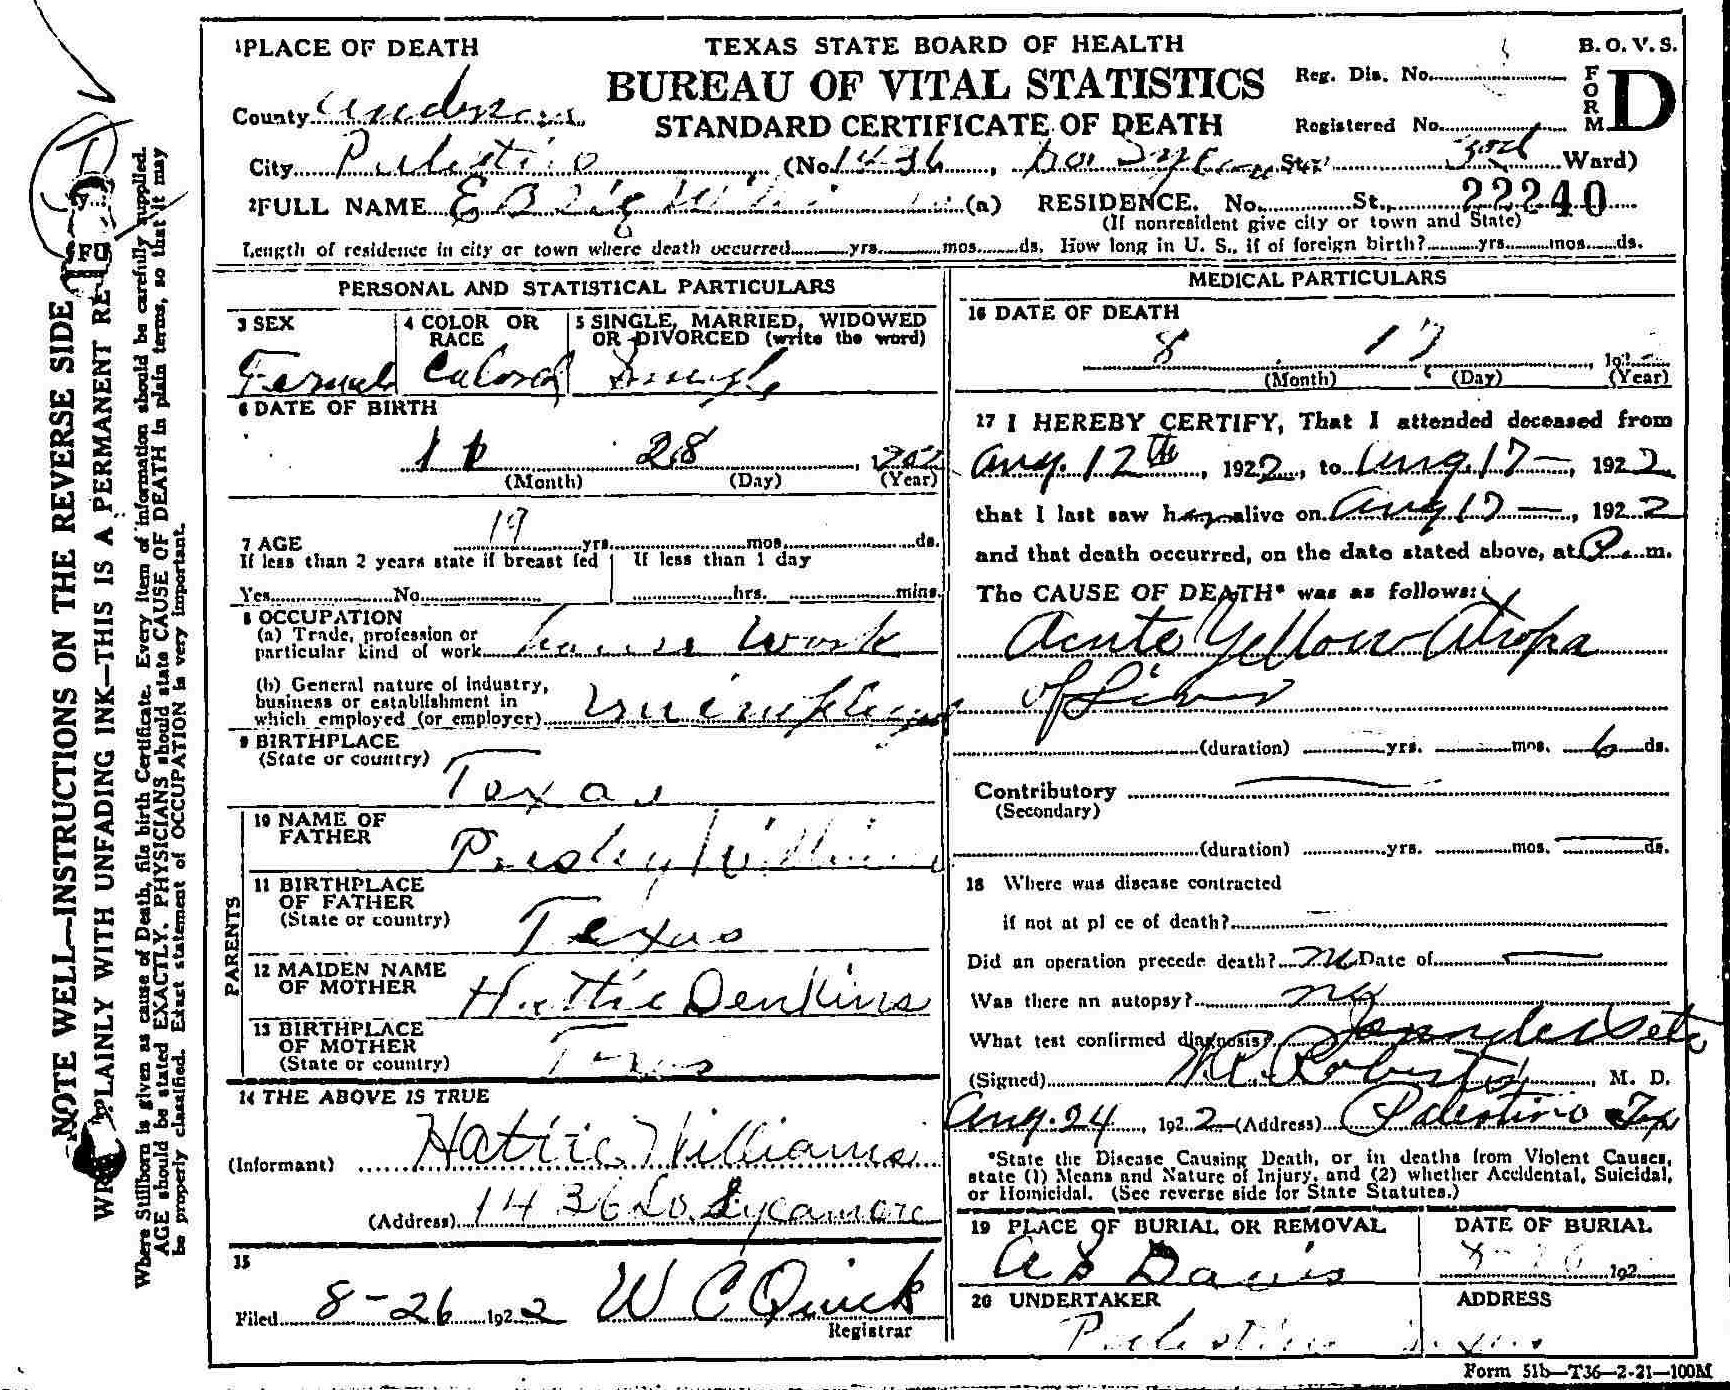 1 PLACE OF DEATH
TEXAS STATE BOARD OF HEALTH
B. O. V. S.
BUREAU OF VITAL STATISTICS
STANDARD CERTIFICATE OF DEATH
Reg. Dis. No.
Registered No.
FORM D
County Anderson
City Palestine (No. 1436, So Sycamore St., 3rd Ward)
2 FULL NAME (a) RESIDENCE. No. St., 22240
(If nonresident give city or town and State)
Length of residence in city or town where death occurred yrs. mos. ds. How long in U. S., if of foreign birth? yrs. mos. ds.
PERSONAL AND STATISTICAL PARTICULARS
3 SEX
Female
4 COLOR OR RACE
Colored
5 SINGLE, MARRIED, WIDOWED
OR DIVORCED (write the word)
Single
6 DATE OF BIRTH
28
(Month) (Day) (Year)
7 AGE 19 yrs. mos. ds.
If less than 2 years state if breast fed
Yes No
If less than 1 day
hrs. mins.
8 OCCUPATION
(a) Trade, profession or
particular kind of work house work
(b) General nature of industry,
business or establishment in
which employed (or employer)
9 BIRTHPLACE
(State or country)
Texas
PARENTS
10 NAME OF
FATHER
Presley Williams
11 BIRTHPLACE
OF FATHER
(State or country)
Texas
12 MAIDEN NAME
OF MOTHER
Hattie Denkins
13 BIRTHPLACE
OF MOTHER
(State or country)
Texas
14 THE ABOVE IS TRUE
(Informant) Hattie Williams
(Address) 1436 So. Sycamore
15
Filed 8-26 1922 W C Quick
Registrar
MEDICAL PARTICULARS
16 DATE OF DEATH
8 17 192
(Month) (Day) (Year)
17 I HEREBY CERTIFY, That I attended deceased from
Aug. 12th, 1922, to Aug. 17-, 1922
that I last saw her alive on Aug 17-, 1922
and that death occurred, on the date stated above, at P. m.
The CAUSE OF DEATH* was as follows:
Acute Yellow Atropa
of Liver
(duration) yrs. mos. 6 ds.
Contributory
(Secondary)
(duration) yrs. mos. ds.
18 Where was disease contracted
if not at pl ce of death?
Did an operation precede death? no Date of
Was there an autopsy? no
What test confirmed diagnosis?
(Signed) Roberts, M. D.
Aug. 24, 1922 (Address) Palestine Tex
*State the Disease Causing Death, or in deaths from Violent Causes,
state (1) Means and Nature of Injury, and (2) whether Accidental, Suicidal,
or Homicidal. (See reverse side for State Statutes.)
19 PLACE OF BURIAL OR REMOVAL
DATE OF BURIAL
A S Davis
192
20 UNDERTAKER
ADDRESS
Palestine Texas
Form 51b—T36—2-21—100M
NOTE WELL—INSTRUCTIONS ON THE REVERSE SIDE
PLAINLY WITH UNFADING INK—THIS IS A PERMANENT RE
Where Stillborn is given as cause of Death, file birth Certificate. Every item of information should be carefully supplied.
AGE should be stated EXACTLY. PHYSICIANS should state CAUSE OF DEATH in plain terms, so that it may
be properly classified. Exact statement of OCCUPATION is very important.